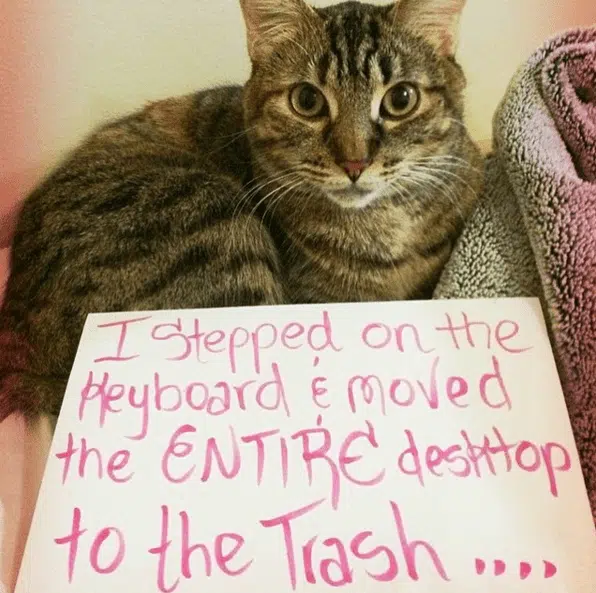 I Stepped on the
Keyboard & moved
the ENTIRE desktop
to the Trash ....